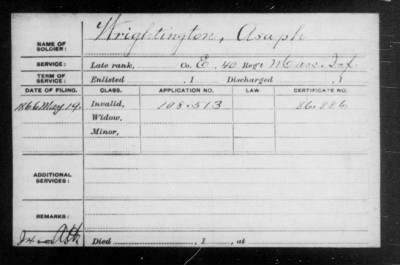 NAME OF SOLDIER: Wrightington, Asaph
SERVICE: Late rank, Co. E, 40 Reg't Mass. Inf.
TERM OF SERVICE: Enlisted , 1 Discharged , 1
DATE OF FILING. CLASS. APPLICATION NO. LAW. CERTIFICATE NO.
1866 May 14. Invalid, 108.513 86.886
Widow,
Minor,
ADDITIONAL SERVICES:
REMARKS:
Died , 1 , at